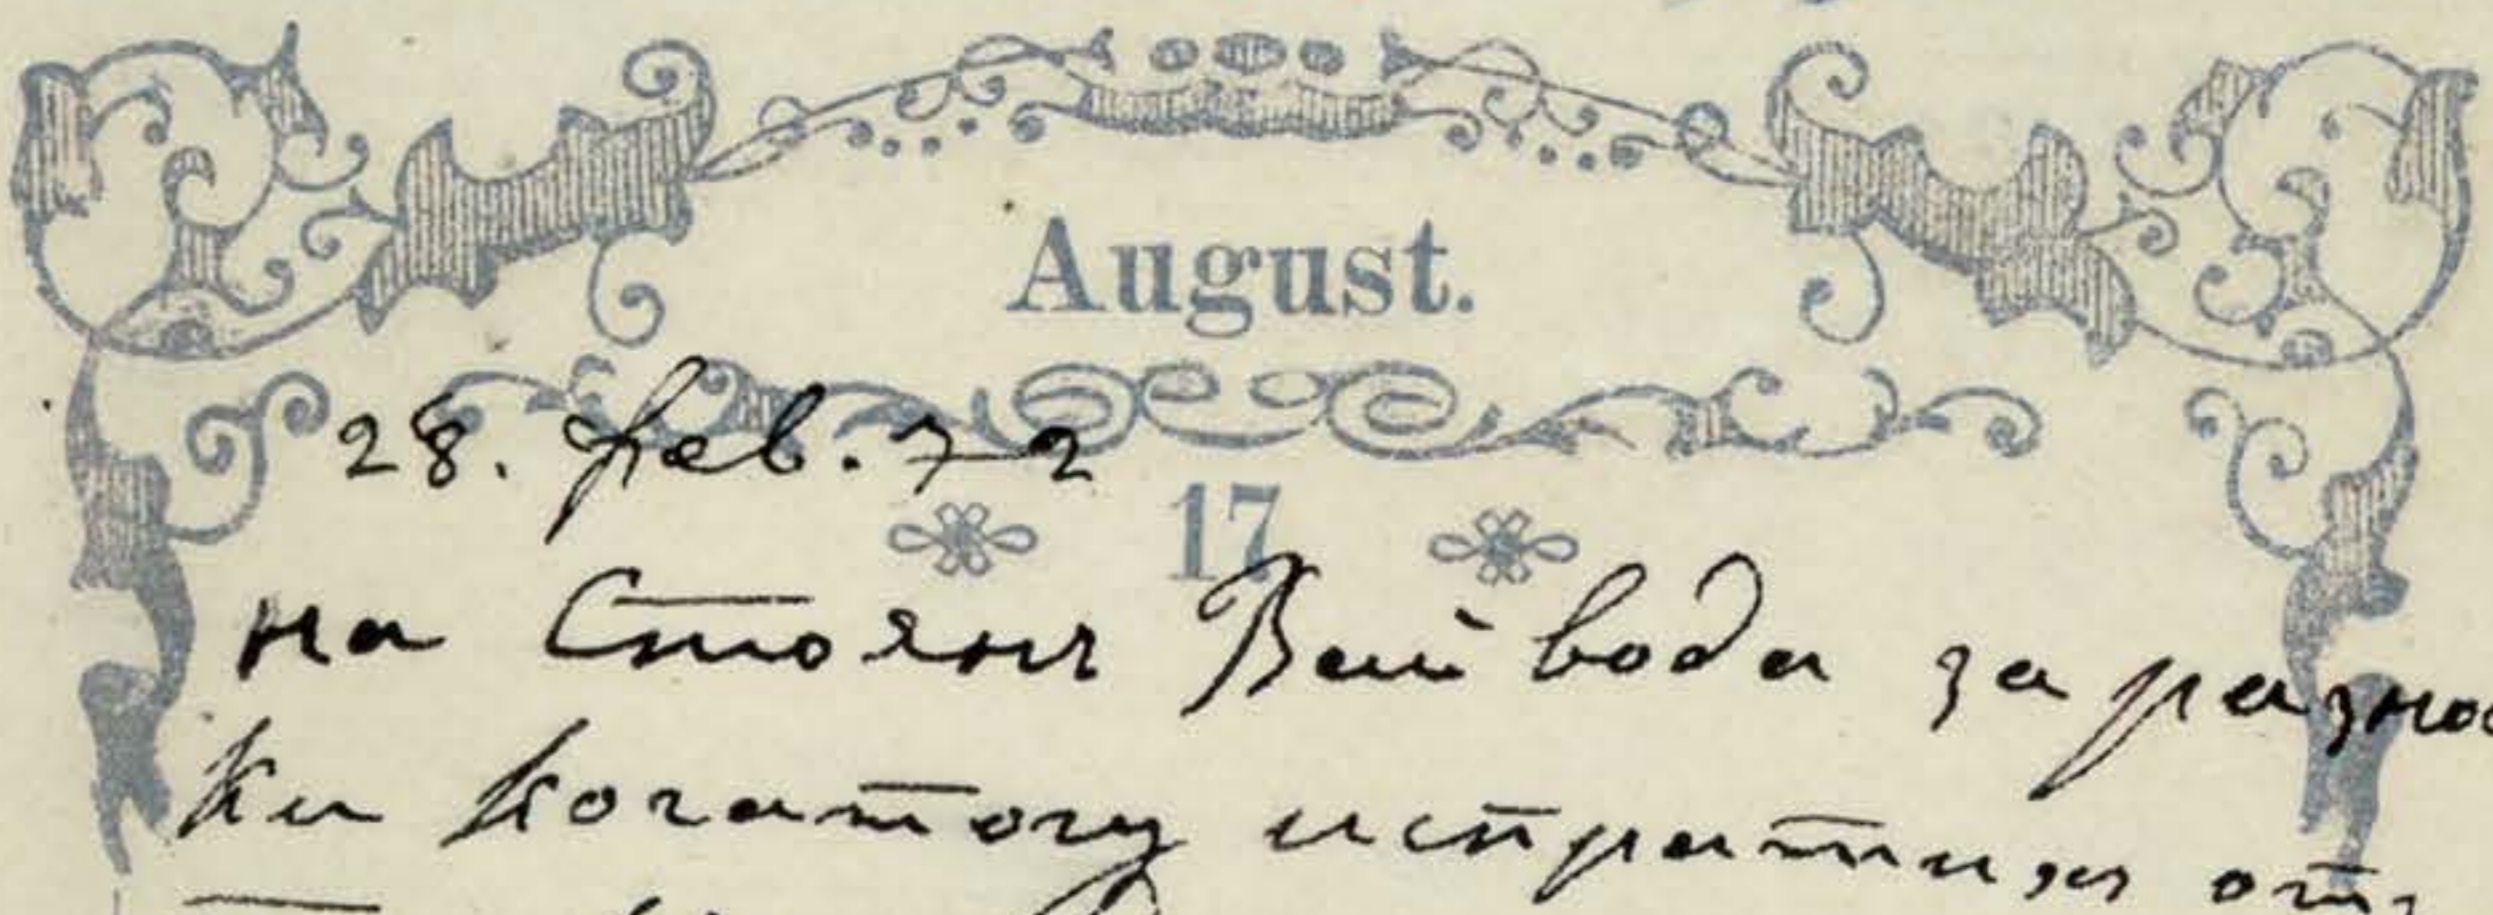 August.
28. feb. 72
17.
на Стоянъ Вайвода за разнос
ки когатогу испратихъ отъ